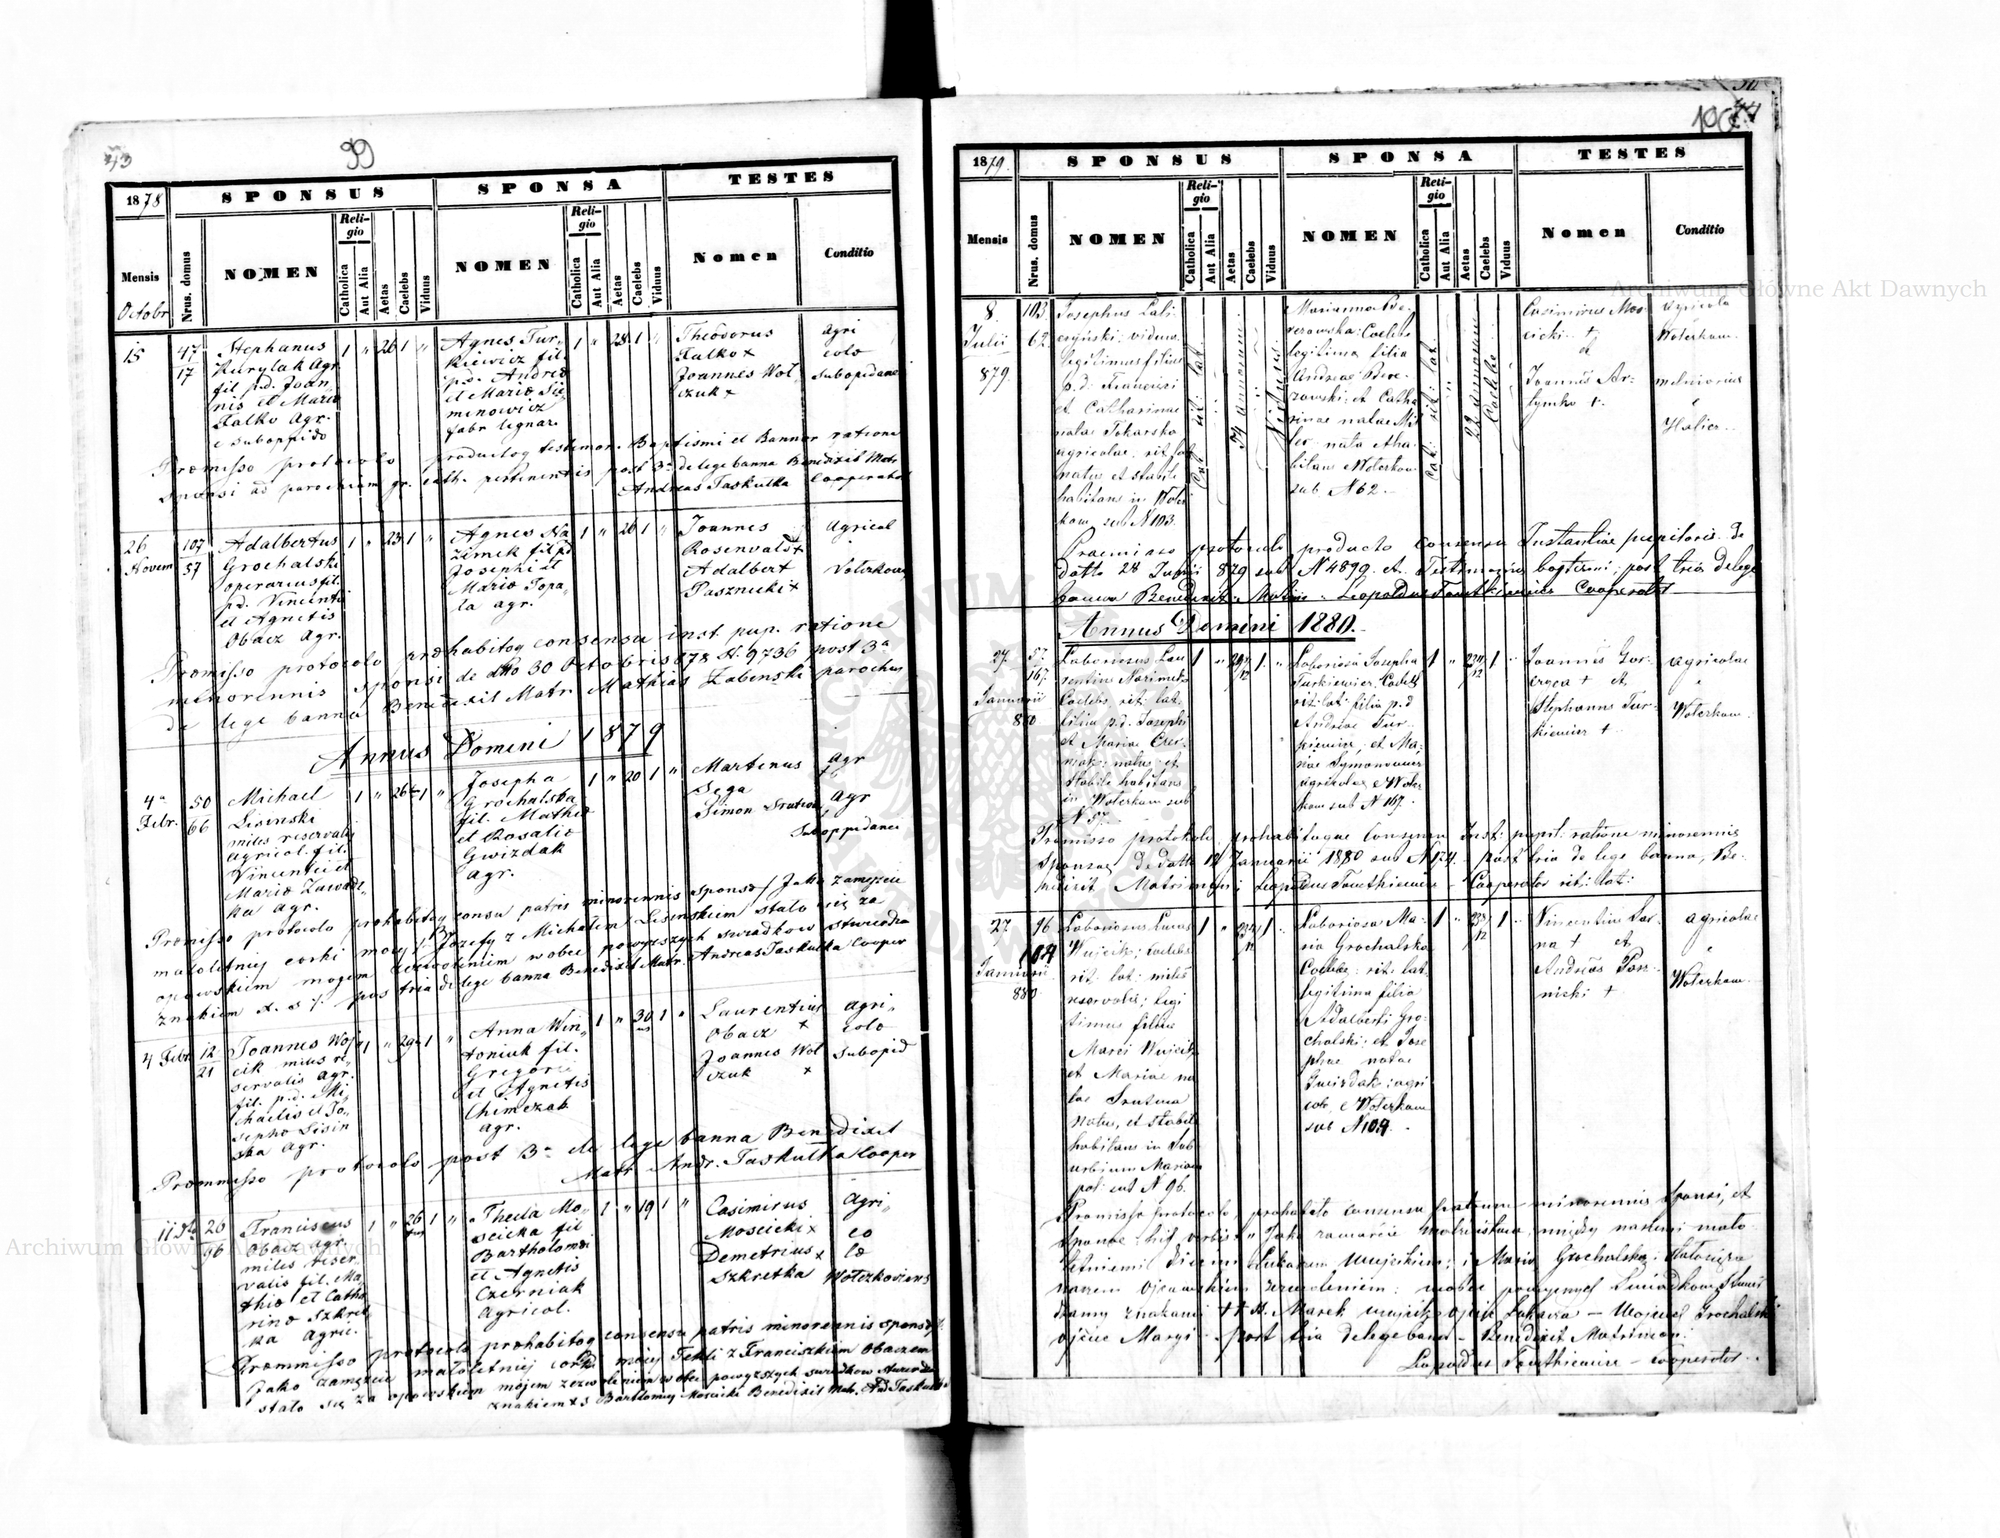 43
99
1878
SPONSUS
SPONSA
TESTES
Mensis
Nrus. domus
NOMEN
Religio
Catholica
Aut Alia
Aetas
Caelebs
Viduus
NOMEN
Religio
Catholica
Aut Alia
Aetas
Caelebs
Viduus
Nomen
Conditio
Octobr
15
47
17
Stephanus
Kurylak Agr.
fil p.d. Joan
nis et Mariæ
Falko Agr.
e suboppido
1 " 26 1 "
Agnes Tur-
kiewicz fil.
p.d. Andreæ
et Mariæ Sie
menowicz
fabr lignar.
1 " 28 1 "
Theodorus
Falko +
Joannes Wol
czuk +
agri
colæ
subopidane
Præmisso protocolo productoq testimon. Baptismi et Bannor ratione
sponsi ad parochiam gr. cath. pertinentis post 3a de lege banna Benedixit Matr
Andreas Taskulka Cooperator
26
Novem
107
57
Adalbertus
Grochalski
operarius fil.
pd. Vincentii
et Agnetis
Obacz Agr.
1 " 23 1 "
Agnes Na
zimek fil pd
Josephi et
Mariæ Topa-
la agr.
1 " 26 1 "
Joannes
Rosenvald +
Adalbert
Pasznicki +
Agricol
Wolczkow
Præmisso protocolo præhabitoq consensu inst. pup. ratione
minorennis sponsi de dto 30 Octobris 878 N. 9736 post 3a
de lege banna Benedixit Matr. Mathias Zabenski parochus
Annus Domini 1879
4a
Febr.
50
66
Michael
Lisinski
miles reservalis
agricol. fil.
Vincentii et
Mariæ Zawadz-
ka agr.
1 " 26 1 "
Josepha
Grochalska
fil. Mathiæ
et Rosaliæ
Gwizdak
agr.
1 " 20 1 "
Martinus
Sega
Simon Sratwa
Agr
Agr
Suboppidanei
Præmisso protocolo præhabitoq consu patris minorennis sponsæ / Jako zamęzcie
małoletniej corki mojej Józefy z Michałem Lisinskiem stało się za
ojcowskiem mojem zezwoleniem wobec powyzszych swiadkow stwierdza
znakiem post tria de lege banna Benedixit Matr. Andreas Taskulka Cooper
4 Febr
12
21
Joannes Woj
cik miles re
servalis agr.
fil. p.d. Mi
chaelis et Jo,
sephæ Lisin
ska agr.
1 " 29 1 "
Anna Win,
toniuk fil.
Gregorii
et Agnetis
Chimczak
agr.
1 " 30 1 "
Laurentius
Obacz +
Joannes Wol
czuk +
agri,
colæ
Subopid
Præmmisso protocolo post 3a de lege banna Benedixit
Matr Andr. Taskulka Cooper
11
26
96
Franciscus
Obacz agr.
miles reser-
valis fil. Ma-
thiæ et Catha
rinæ Szkret
ka Agric.
1 " 26 1 "
Thecla Mo-
scicka fil
Bartholomæi
et Agnetis
Czerniak
Agricol.
1 " 19 1 "
Casimirus
Moscicki +
Demetrius +
Szkretka
Agri,
co
læ
Wolczkoviens
Præmmisso protocolo præhabitoq consensu patris minorennis sponsæ
Jako zamęzcie małoletniej corki mojej Tekli z Franciszkiem Obaczem
stało się za ojcowskiem mojem zezwoleniem wobec powyzszych swiadkow stwierdza
znakiem + S Bartłomiej Moscicki Benedixit Matr. And Taskulka
100
44
1879.
SPONSUS
SPONSA
TESTES
Mensis
Nrus. domus
NOMEN
Religio
Catholica
Aut Alia
Aetas
Caelebs
Viduus
NOMEN
Religio
Catholica
Aut Alia
Aetas
Caelebs
Viduus
Nomen
Conditio
8.
Julii
879.
103.
62.
Josephus Lali
czyński; viduus
legitimus filius
p.d. Francisci
et Catharinae
natae Tokarska
agricolae. rit. lat
natus et stabile
habitans in Wolcz
kow sub N 103.
Cat. rit. lat.
54 annorum
Viduus
Marianna Be-
rezowska: Caelebs
legitima filia
Andreae Bere-
zowski; et Catha
rinae natae Mil
ler nata et ha-
bitans e Wolczkow
sub N 62.
Cat. rit. lat.
22 annorum
Caelebs
Casimirus Mos-
cicki. +
et
Joannes Ar-
tymko +.
agricola
Wolczkow.
melniorius
e
Halicz.
Praemisso protocolo producto consensu Instantiae pupilaris. de
datto 28 Junii 879 sub N 4899. et Testimonio baptismi; post tria de lege
banna Benedixit Matrim. Leopoldus Tomtkiewicz Cooperator
Annus Domini 1880.
27.
Januarii
880
57.
167.
Laboriosus Lau
rentius Narimek
Caelebs rit: lat:
filius p.d. Josephi
et Mariae Czer-
niak; natus et
stabile habitans
in Wolczkow sub
N 57.
1 " 29 1. "
Laboriosa Josepha
Turkiewicz, Caelebs
rit: lat: filia p.d
Andreae Tur-
kiewicz; et Ma-
riae Symonowicz
agricolae e Wolcz
kow sub N 167.
1 " 1 "
Joannes Gor-
czyca + et
Stephanus Tur-
kiewicz +
agricolae
e
Wolczkow.
Præmisso protokolo, prohabitoque Consensu Inst: pupil: ratione minorennis
sponsae de datto 12 Januarii 1880 sub N 174. post tria de lege banna, Be-
nedixit Matrimonium Leopoldus Tomtkiewicz – Cooperator rit: lat:
27
Januarii
880
96
104
Laboriosus Lucas
Wujcik; caelebs
rit: lat: miles
reservalis; legi
timus filius
Marci Wujcik
et Mariae na
tae Sratwa
natus, et stabile
habitans in Sub
urbium Mariam
pol: sub N 96.
1 " 1 "
Laboriosa Ma-
ria Grochalska
Caelebs rit: lat.
legitima filia
Adalberti Gro-
chalski; et Jose
phae natae
Gwizdak; agri
colæ e Wolczkow
sub N 104.
1 " 1 "
Vincentius Lar-
na + et
Andreas Pas-
nicki +
agricolae
e
Wolczkow.
Præmisso protocolo, prohabito consensu patrum – minorennis sponsi, et
sponsae hif verbis „Jako zawarcie małżeństwa, między naszemi mało-
letniemi dziećmi Łukaszem Wujcikiem; i Maryą Grochalską;
naszem ojcowskiem zezwoleniem; wobec powyższych Świadkow
znakami + + Marek Wujcik ojciec Łukasza – Wojciech Grochalski
ojciec Maryi – post tria de lege banna – Benedixit Matrimon:
Leopoldus Tomtkiewicz – Cooperator.
Archiwum Główne Akt Dawnych
Archiwum Główne Akt Dawnych